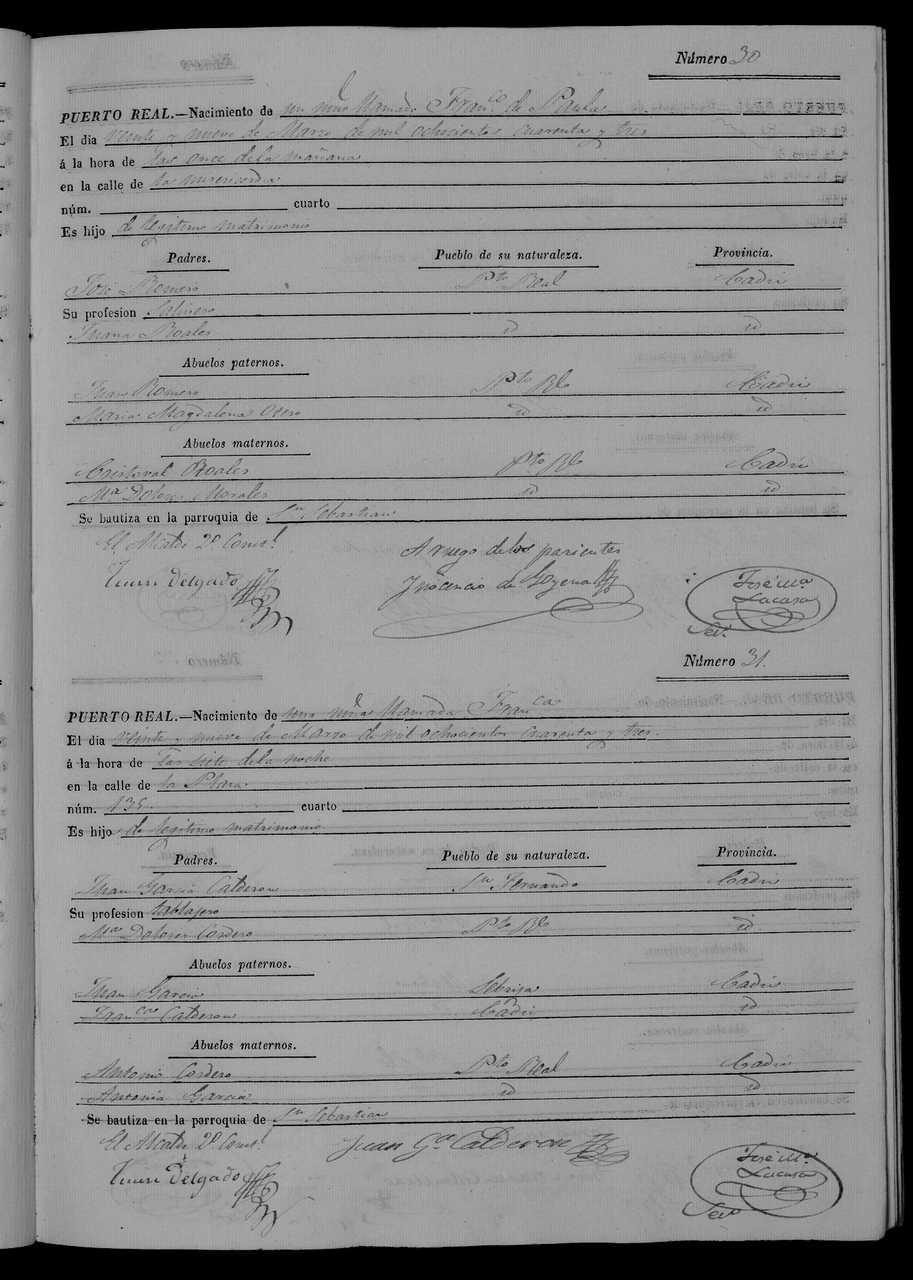 Número 30
PUERTO REAL.—Nacimiento de un niño llamado Franco de Paula
El dia Veinte y nueve de Marzo de mil ochocientos cuarenta y tres
á la hora de las once de la mañana
en la calle de la misericordia
núm. cuarto
Es hijo de legitimo matrimonio
Padres. Pueblo de su naturaleza. Provincia.
José Romero Pto Real Cadiz
Su profesion Salinero
Juana Roales id id
Abuelos paternos.
Juan Romero Pto Rl Cadiz
Maria Magdalena Otero id id
Abuelos maternos.
Cristoval Roales Pto Rl Cadiz
Ma Dolores Morales id id
Se bautiza en la parroquia de Sn Sebastian
El Alcalde 2º Const.l
A ruego de los parientes
Delgado
Inocencio de
José Ma
Lacasa
Sec.
Número 31.
PUERTO REAL.—Nacimiento de una niña llamada Franca
El dia veinte y nueve de Marzo de mil ochocientos cuarenta y tres.
á la hora de las siete de la noche
en la calle de la Plaza
núm. 135 cuarto
Es hijo de legitimo matrimonio
Padres. Pueblo de su naturaleza. Provincia.
Juan Garcia Calderon Sn Fernando Cadiz
Su profesion tablajero
Ma Dolores Cordero Pto Rl id
Abuelos paternos.
Juan Garcia Lebrija Cadiz
Franca Calderon Cadiz id
Abuelos maternos.
Antonio Cordero Pto Real Cadiz
Antonia Garcia id id
Se bautiza en la parroquia de Sn Sebastian
El Alcalde 2º Const.l
Juan Ga Calderon
Delgado
José Ma
Lacasa
Seco